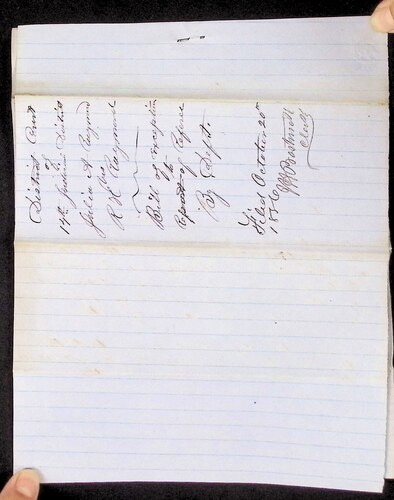 District Court
14th Judicial District
Julia A Raymond
vs
R R Raymond
Bill of exception
to
Report of Referee
By Deft.
Filed October 20th
1856
Clerk